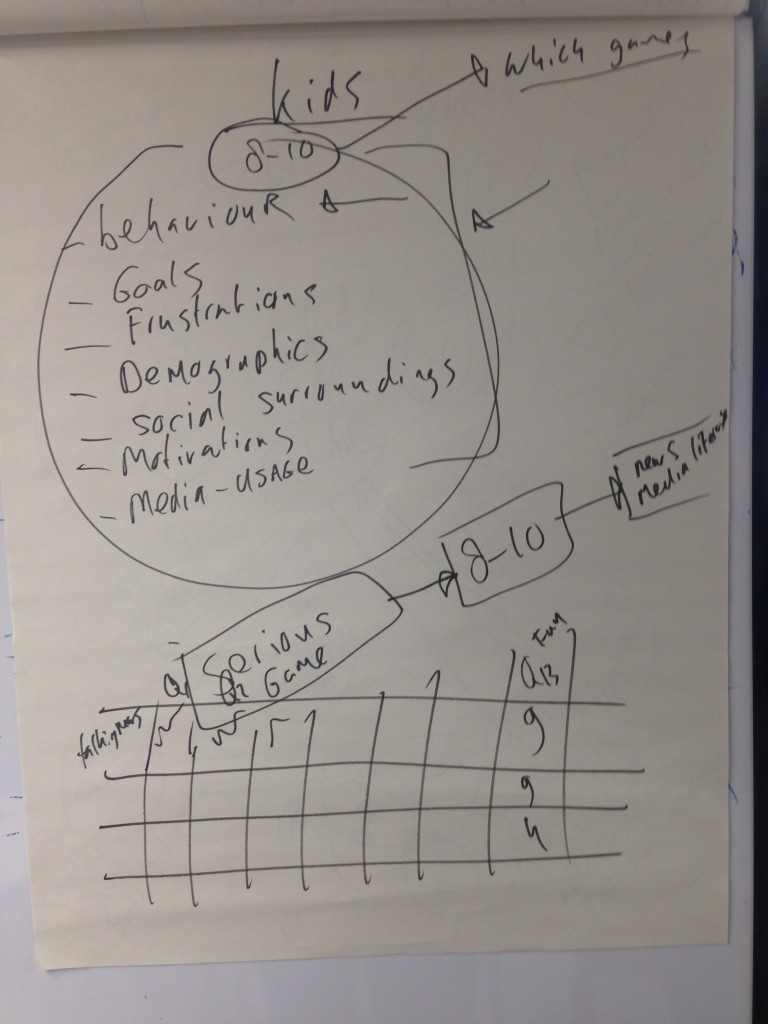 kids
which games
8-10
- behaviouR
- Goals
- Frustrations
- Demographics
- social surroundings
- Motivations
- Media-USAGE
news
Media
8-10
Serious
Game
Fun
Q1 Q2 Q13
9
9
4